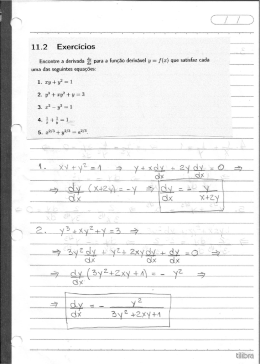 11.2 Exercícios
Encontre a derivada dy/dx para a função derivável y = f(x) que satisfaz cada
uma das seguintes equações:
1. xy + y² = 1
2. y³ + xy² + y = 3
3. x² − y² = 1
4. 1/x + 1/y = 1
5. x^(2/3) + y^(2/3) = a^(2/3)
1. xy + y² = 1 ⇒ y + x dy/dx + 2y dy/dx = 0 ⇒
⇒ dy/dx (x+2y) = −y ⇒ dy/dx = − y/(x+2y)
2. y³ + xy² + y = 3 ⇒
⇒ 3y² dy/dx + y² + 2xy dy/dx + dy/dx = 0 ⇒
⇒ dy/dx (3y² + 2xy + 1) = − y² ⇒
⇒ dy/dx = − y²/(3y² + 2xy + 1)
tilibra